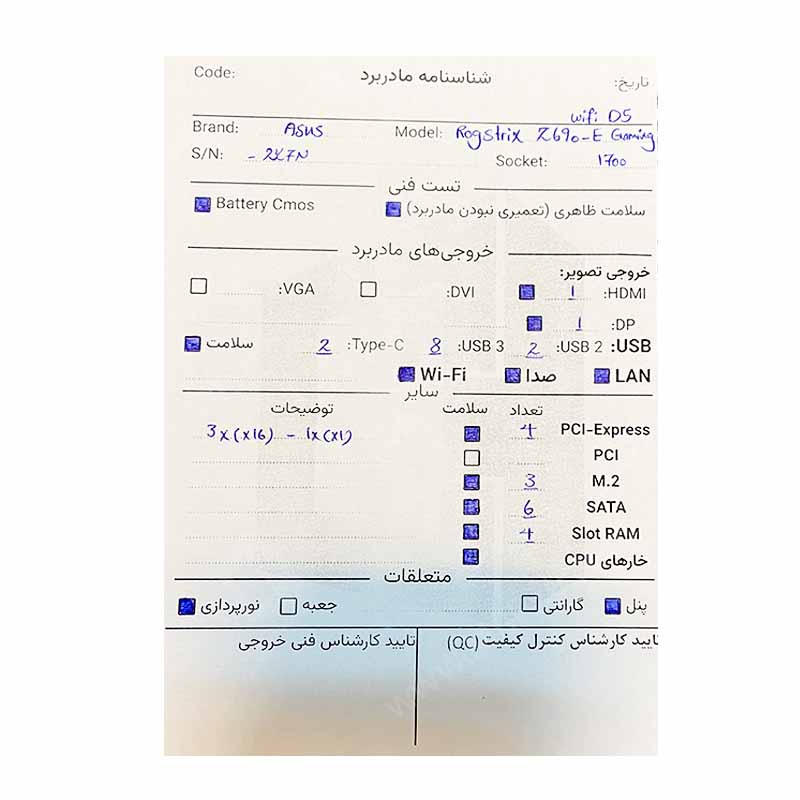 شناسنامه مادربرد
Code:
تاریخ:
wifi D5
Brand: Asus Model: Rogstrix Z690-E Gaming
S/N: Socket: 1700
تست فنی
سلامت ظاهری (تعمیری نبودن مادربرد) Battery Cmos
خروجی‌های مادربرد
خروجی تصویر:
HDMI: 1 DVI: VGA:
DP: 1
USB: USB 2: 2 USB 3: 8 Type-C: 2 سلامت
LAN صدا Wi-Fi
سایر
تعداد سلامت توضیحات
PCI-Express 4 3x(x16) - 1x(x1)
PCI
M.2 3
SATA 6
Slot RAM 4
خارهای CPU
متعلقات
پنل گارانتی جعبه نورپردازی
تایید کارشناس کنترل کیفیت (QC) تایید کارشناس فنی خروجی